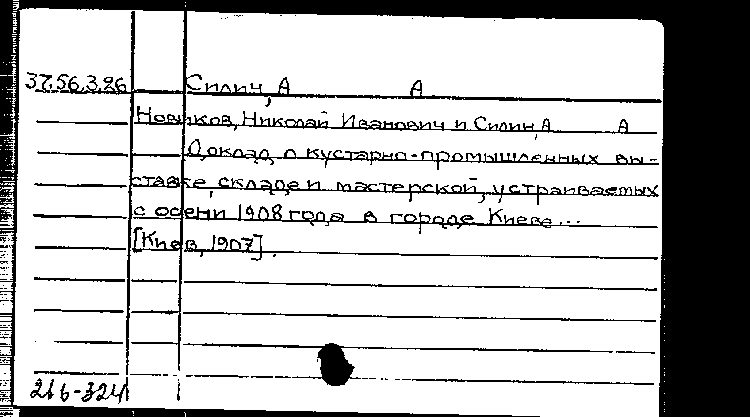 37.56.3.26 Силич, А А
Новиков, Николай Иванович и Силич, А А
Доклад о кустарно-промышленных вы-
ставке, складе и мастерской, устраиваемых
с осени 1908 года в городе Киеве...
[Киев, 1907].
216-324